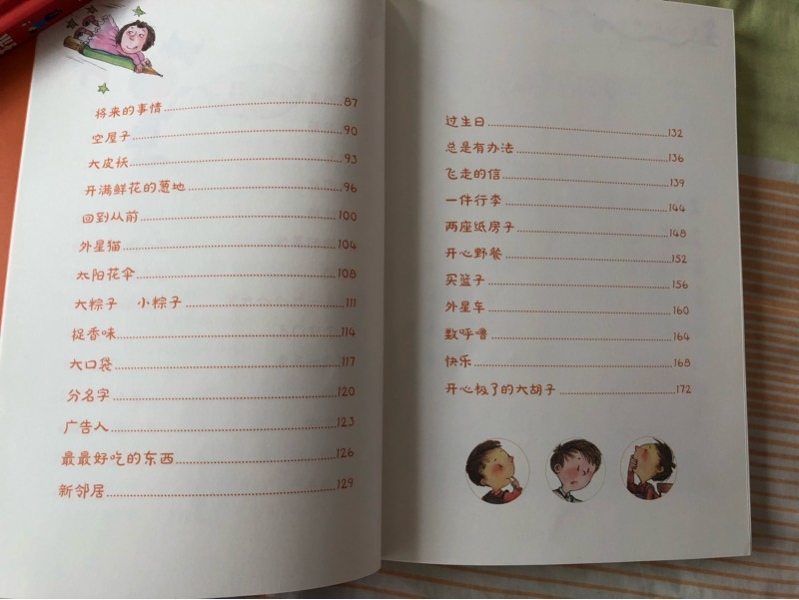 将来的事情 87
空屋子 90
大皮妖 93
开满鲜花的葱地 96
回到从前 100
外星猫 104
太阳花伞 108
大粽子 小粽子 111
捉香味 114
大口袋 117
分名字 120
广告人 123
最最好吃的东西 126
新邻居 129
过生日 132
总是有办法 136
飞走的信 139
一件行李 144
两座纸房子 148
开心野餐 152
买篮子 156
外星车 160
数呼噜 164
快乐 168
开心极了的大胡子 172